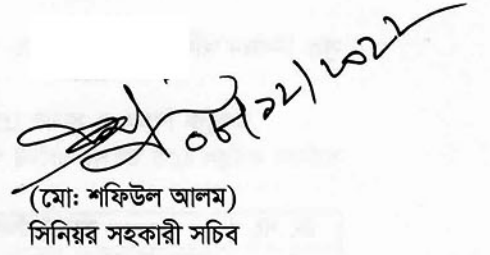 ০৮/১২/২০২২
(মোঃ শফিউল আলম)
সিনিয়র সহকারী সচিব